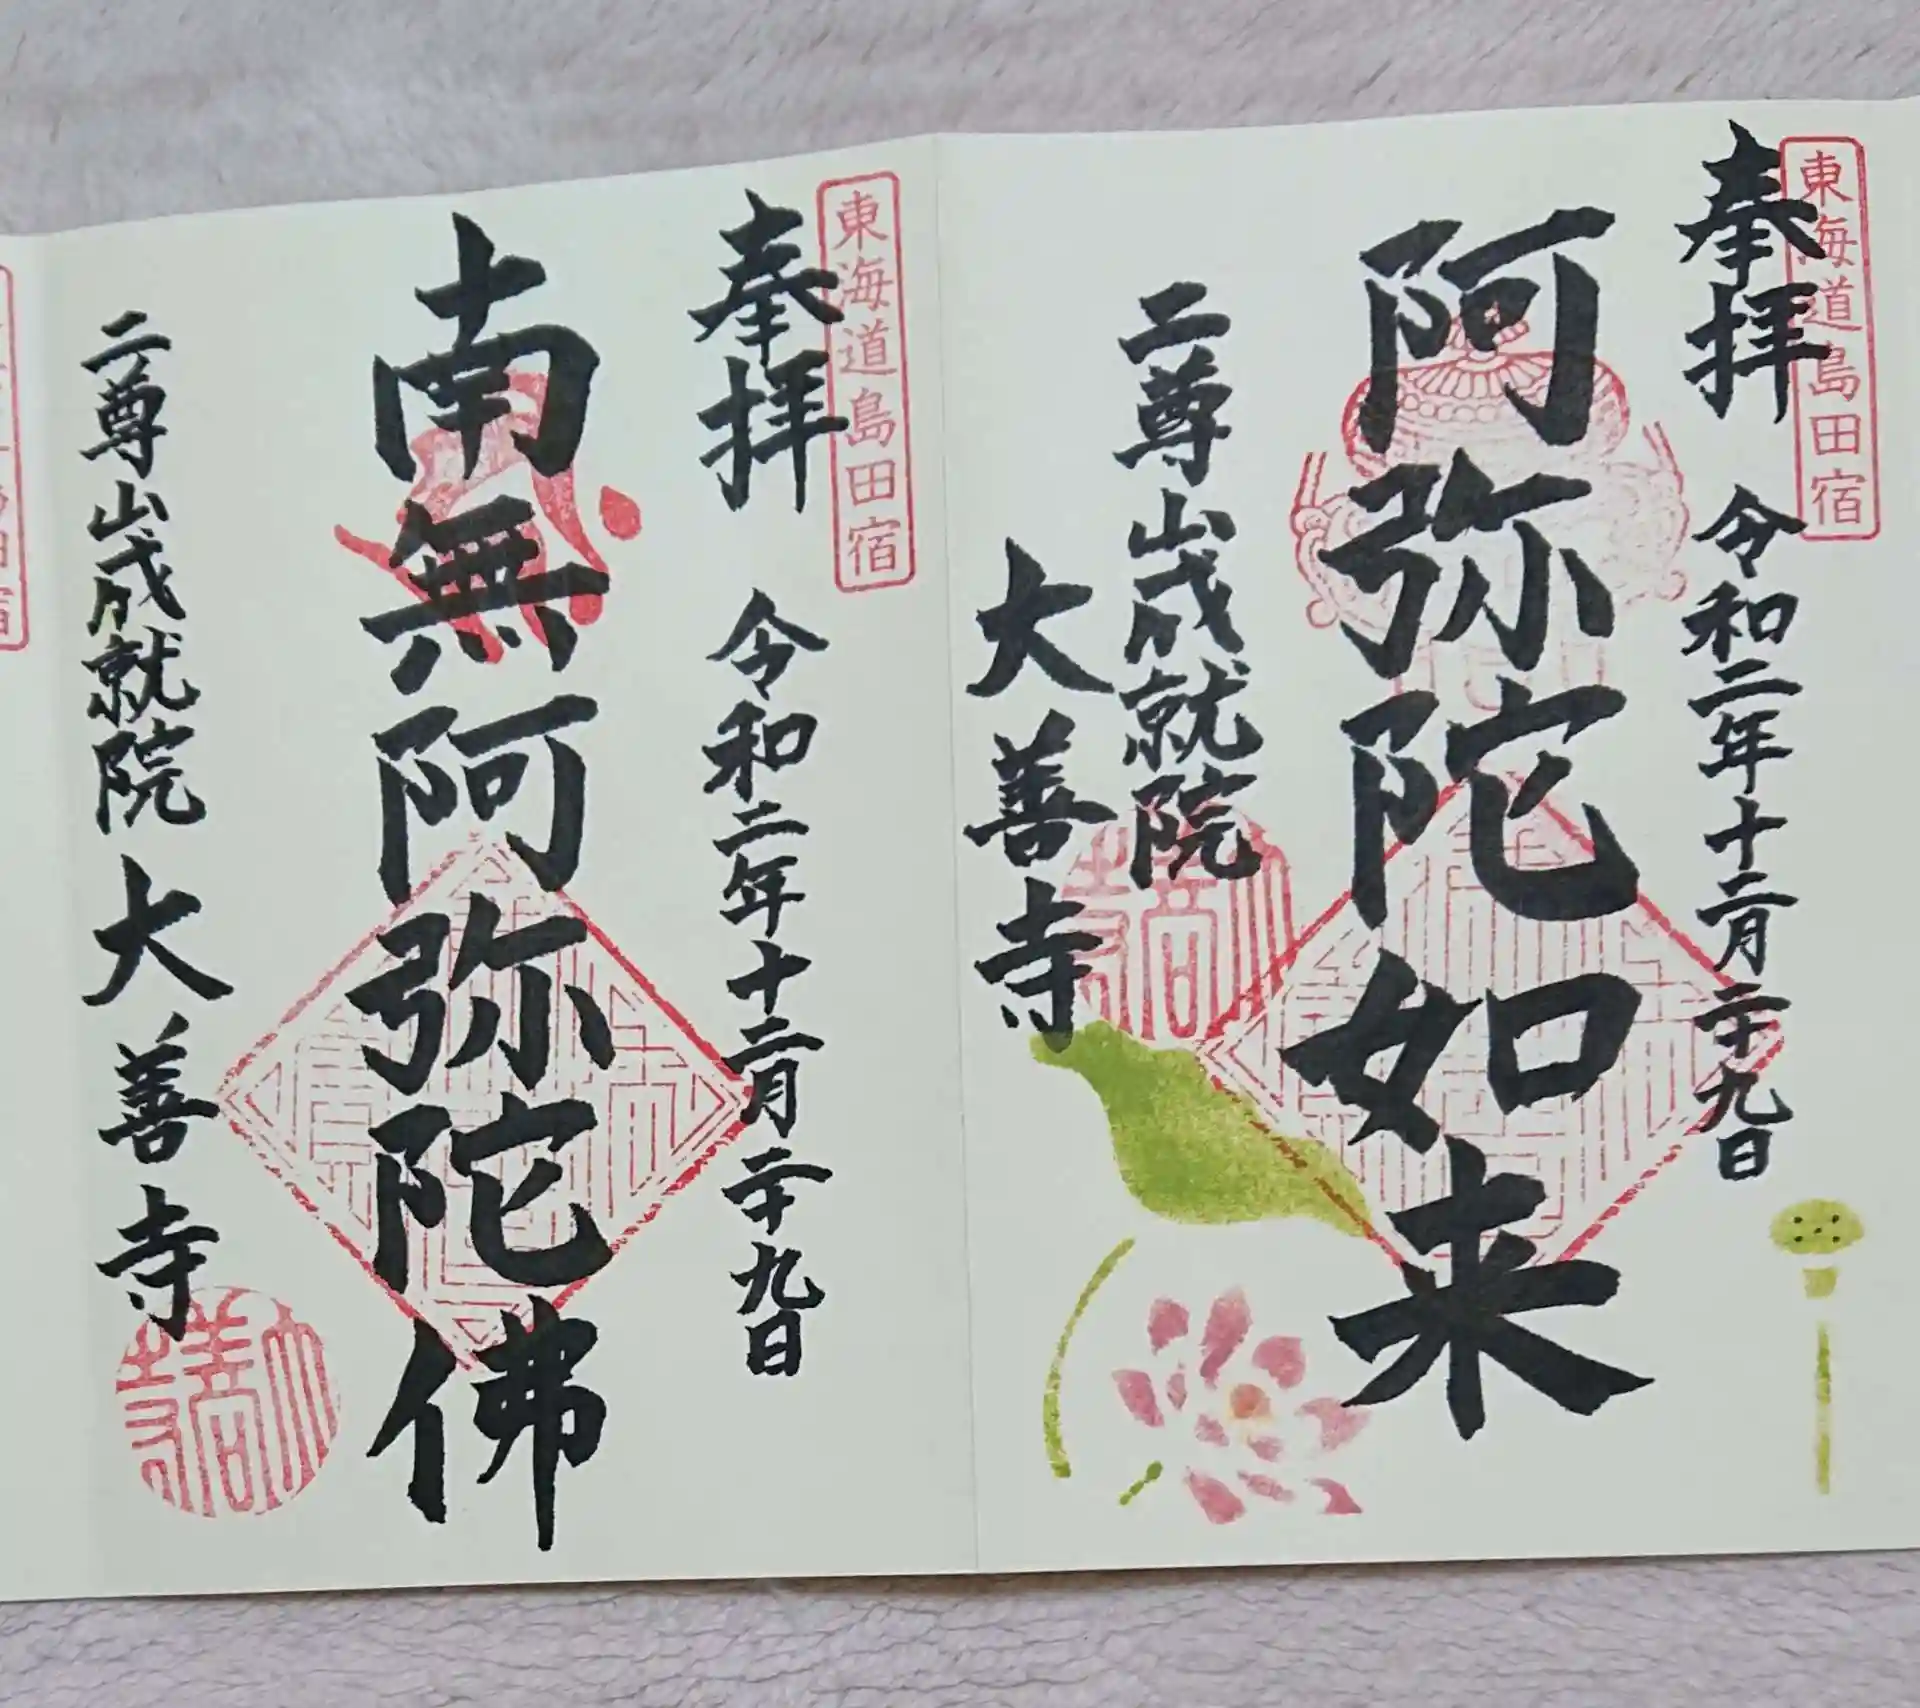 東海道島田宿
奉拝 令和二年十二月二十九日
阿弥陀如来
二尊山成就院
大善寺
東海道島田宿
奉拝 令和二年十二月二十九日
南無阿弥陀佛
二尊山成就院 大善寺